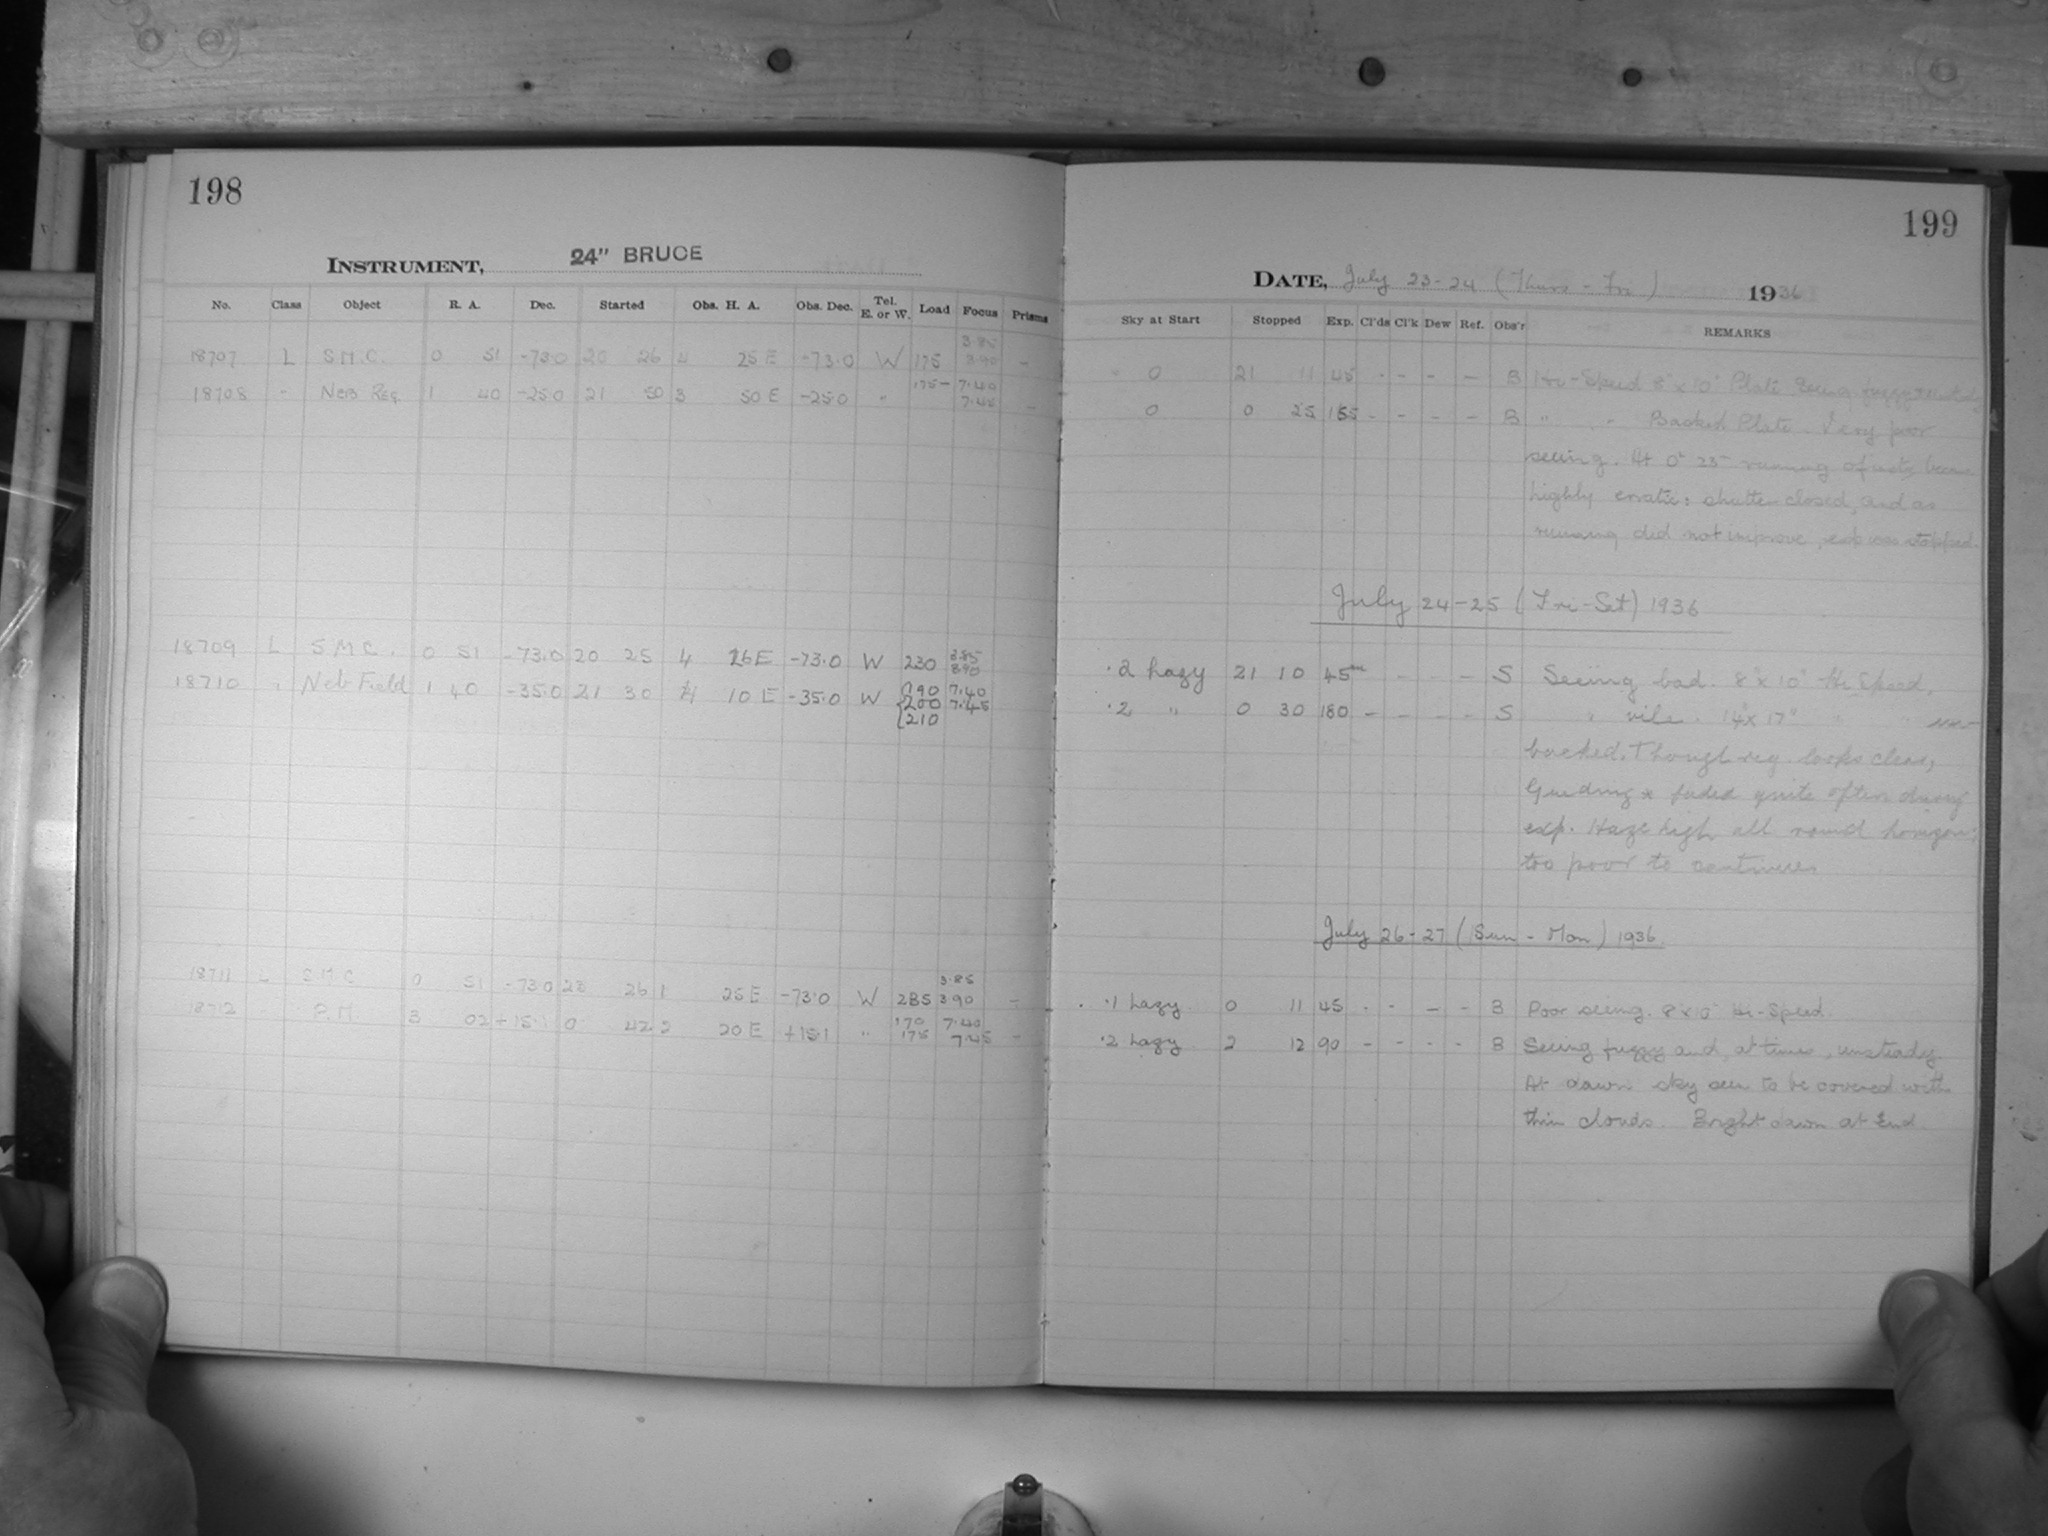 198
INSTRUMENT, 24" BRUCE
No. Class Object R. A. Dec. Started Obs. H. A. Obs. Dec. Tel. E. or W. Load Focus Prisms
18707 L S.M.C. 0 51 -73.0 20 26 4 25 E -73.0 W 175 3.85 3.90 -
18708 " Neb Reg. 1 40 -25.0 21 50 3 50 E -25.0 " 175- 7.40 7.45 -
18709 L S.M.C. 0 51 -73.0 20 25 4 26 E -73.0 W 230 3.85 3.90
18710 " Neb Field 1 40 -35.0 21 30 4 10 E -35.0 W 190 7.40
200 7.45
210
18711 L S.M.C 0 51 -73.0 23 26 1 25 E -73.0 W 285 3.85 3.90 -
18712 P.M. 3 02 +15.1 0 42 2 20 E +15.1 " 170 7.40
175 7.45 -
199
DATE, July 23-24 (Thurs - Fri) 1936
Sky at Start Stopped Exp. Cl'ds Cl'k Dew Ref. Obs'r REMARKS
0 21 11 45 - - - - B Hi-Speed 8" x 10" Plate Seeing fuggy
0 0 25 155 - - - - B " " Backed Plate. Very poor
seeing. At 0h 25m running of
highly erratic: shutter closed, and as
running did not improve, exp was stopped.
July 24-25 (Fri-Sat) 1936
.2 hazy 21 10 45m - - - S Seeing bad. 8" x 10" Hi Speed.
.2 " 0 30 180 - - - - S " vile. 14" x 17" " " un-
backed. Though reg. looks clear,
Guiding * faded quite often during
exp. Haze high all round horizon;
too poor to continue.
July 26-27 (Sun - Mon) 1936.
.1 hazy. 0 11 45 - - - - B Poor seeing. 8 x 10" Hi-Speed.
.2 hazy 2 12 90 - - - - B Seeing fuggy and, at times, unsteady.
At dawn sky seen to be covered with
thin clouds. Bright dawn at End.